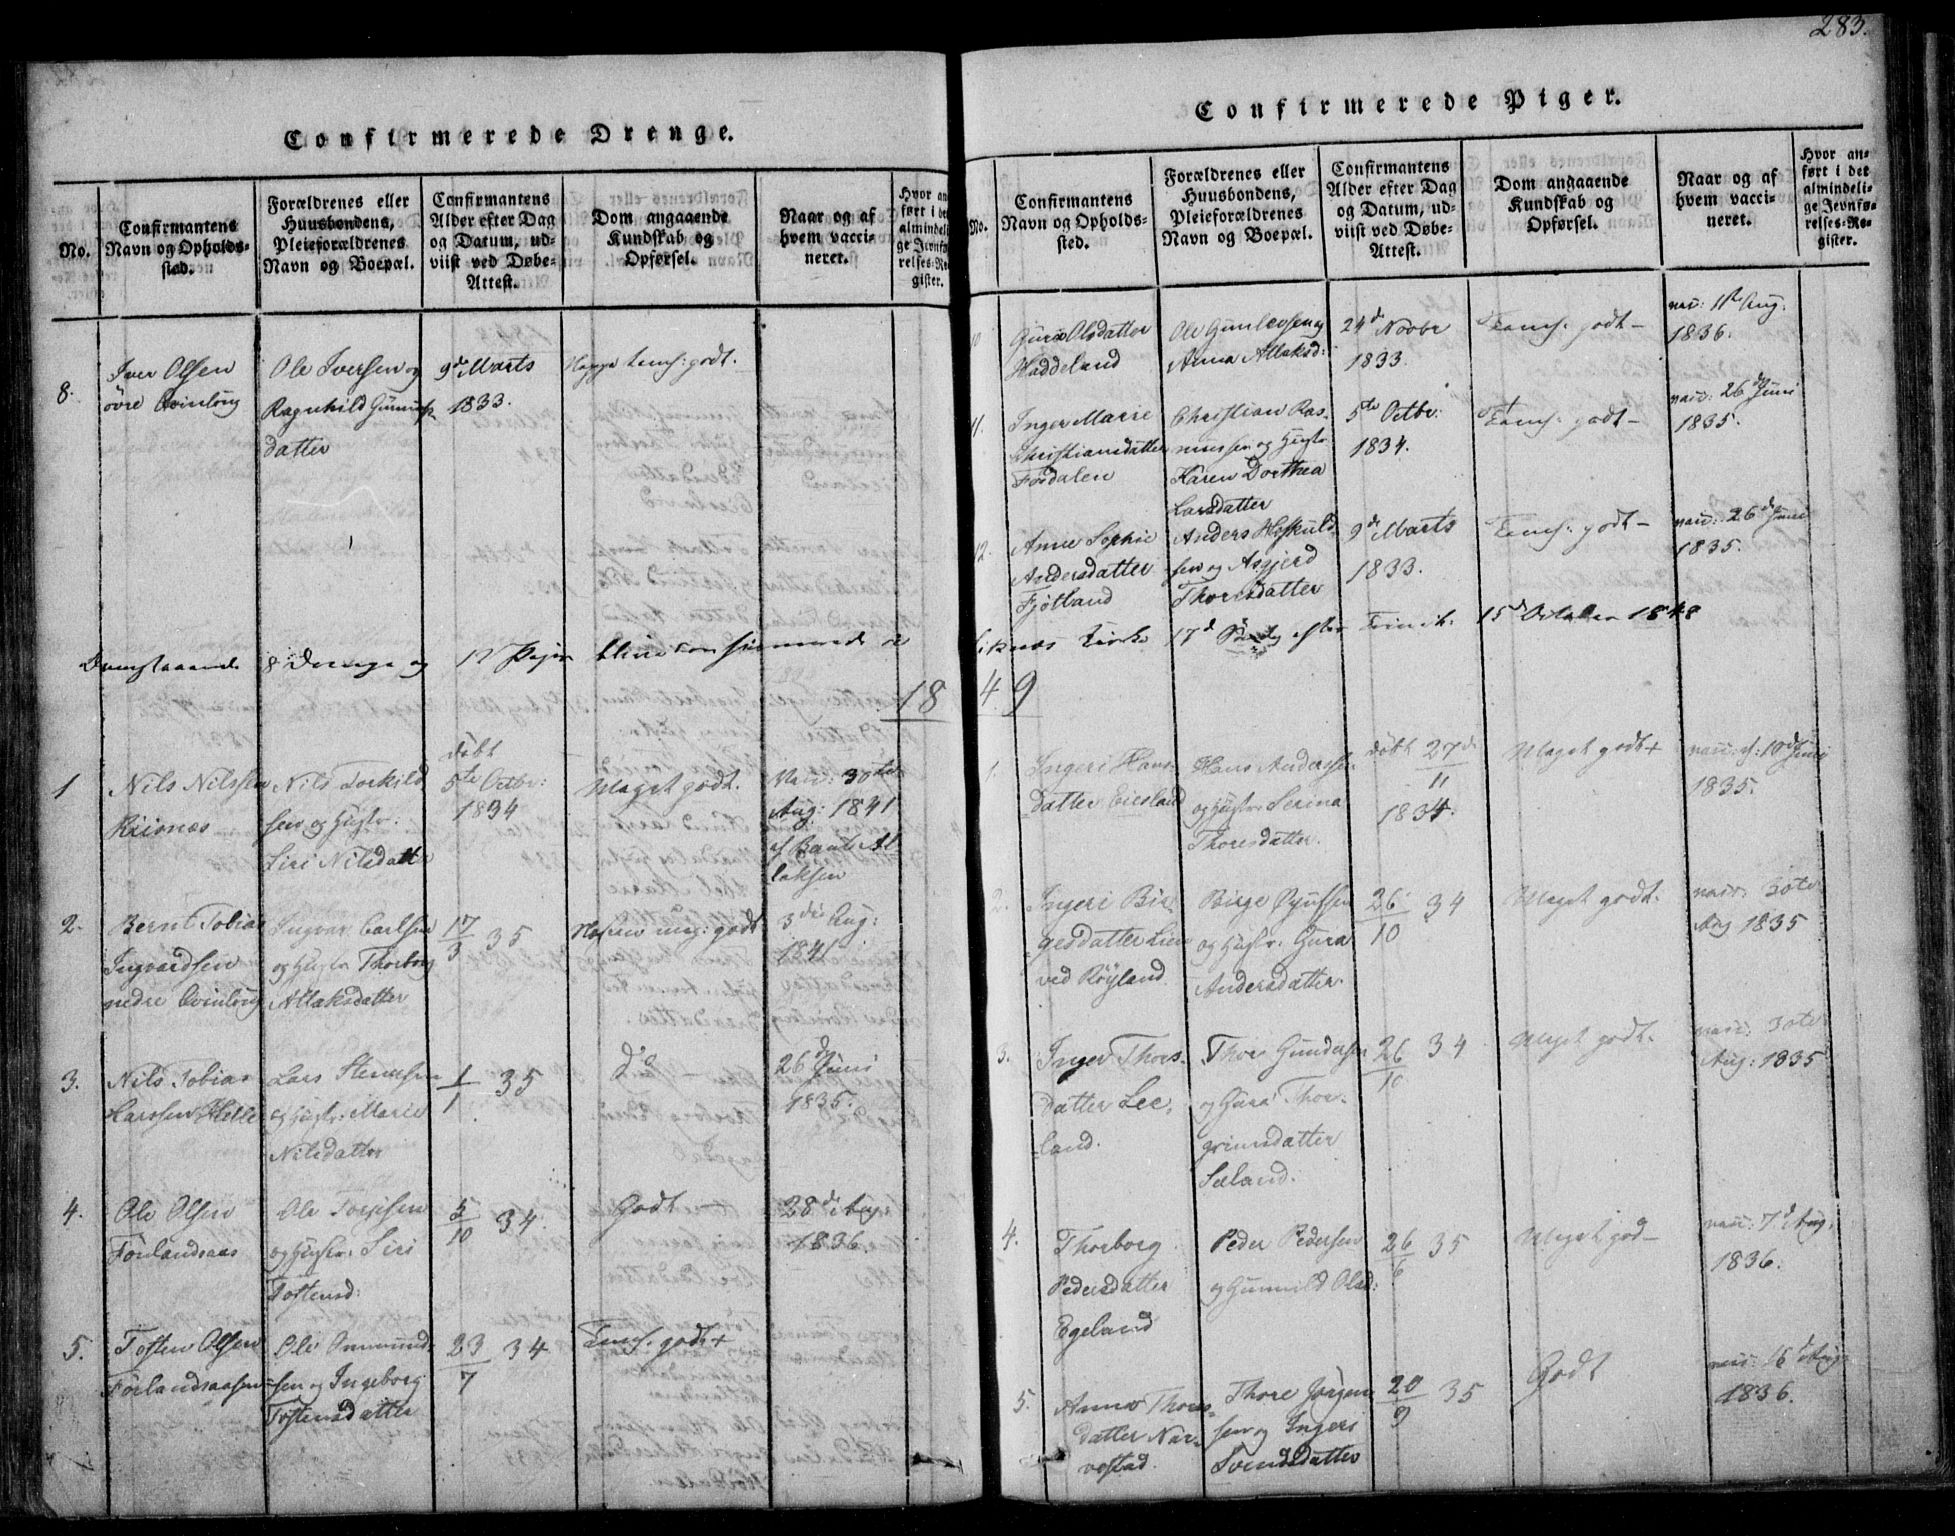 283.
Confirmerede Drenge.
No.
Confirmantens
Navn og Opholds-
sted.
Forældrenes eller
Huusbondens,
Pleieforældrenes
Navn og Boepæl.
Confirmantens
Alder efter Dag
og Datum, ud-
viist ved Døbe-
Attest.
Dom angaaende
Kundskab og
Opførsel.
Naar og af
hvem vacci-
neret.
Hvor an-
ført i det
almindeli-
ge Jevnfø-
relses-Re-
gister.
8.
Iver Olsen
øvre Qvinløug
Ole Iversen og
Ragnhild
datter
9de Marts
1833.
godt.
8 Drenge og
12 Piger
bleve confirmerede
18
1
Nils Nilssen
Risnæs
Nils Torkild
sen og Hustr:
Siri Nilsdatt
døbt
5te Octbr:
1834
Meget godt.
Vacc: 30te
Aug: 1841
af
laksen
2.
Bernt Tobias
Ingvardsen
nedre Qvinløug
Ingvar Carlsen
og Hustr Thorborg
Atlaksdatter
17/3 35
godt
3die Aug:
1841
3.
Nils Tobias
Larssen Helle
Lars
og Hustr: Marie
Nilsdatter
1/1 35
do
26de Juni
1835.
4.
Ole Olsen
Førlandsaas
Ole
og Hustr. Siri
Tostensd:
5/10 34.
Godt
28de Aug
1836.
5.
Tosten Olsen
Førlandsaasen
Ole Ommund-
sen og Ingeborg
Tostensdatter
23/7 34
Tems. godt +
Confirmerede Piger.
No.
Confirmantens
Navn og Opholds-
sted.
Forældrenes eller
Huusbondens,
Pleieforældrenes
Navn og Boepæl.
Confirmantens
Alder efter Dag
og Datum, ud-
viist ved Døbe-
Attest.
Dom angaaende
Kundskab og
Opførsel.
Naar og af
hvem vacci-
neret.
Hvor an-
ført i det
almindeli-
ge Jevnfø-
relses-Re-
gister.
10
Guro Olsdatter
Haddeland
Ole Gunlevsen og
Anna Atlaksd:
24de Novbr
1833.
Tems: godt –
vac: 11te Aug:
1836.
11.
Inger Marie
Christiansdatter
Fosdalen
Christian Ras-
mussen og Hustr
Karen Dorthea
Larsdatter
5te Octbr:
1834.
Tems: godt –
vacc: 26de Juni
1835.
12.
Anne Sophie
Andersdatter
Fjotland
Anders Høskuld
sen og Asgjerd
Thoresdatter
9de Marts
1833.
Tems: godt –
vacc: 26de Juni
1835.
Liknæs Kirke 17de Søndag efter Trinit: 15de October 1848
49
1.
Ingeri Hans-
datter Eiesland
Hans Anderssen
og Hustr. Serina
Thoresdatter.
døbt 27de/11
1834.
Meget godt +
vacc: d: 10de Juni
1835.
2.
Ingeri Bir-
gesdatter Lien
ved Røyland.
Birge
og Hustr. Gura
Andersdatter.
26/10 34
Meget godt.
vacc: 30te
Aug 1835
3.
Inger Thors-
datter Lee-
land.
Thor Gundersen
og Gura Thor-
grimsdatter
Sæland.
26/10 34
Meget godt.
vacc: 30te
Aug: 1835
4.
Thorborg
Pedersdatter
Egeland
Peder Pedersen
og Gunnild Olsd:
26/6 35
Meget god –
vacc: 7de Aug.
1836.
5.
Anne Thores-
datter Nar-
vestad.
Thore Jørgen
sen og Ingeri
Svendsdatter
20/9 35
Godt
vacc: 16de Aug:
1836.